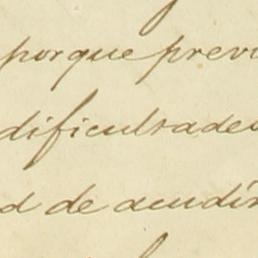 porque previ
dificultades
d de acudir